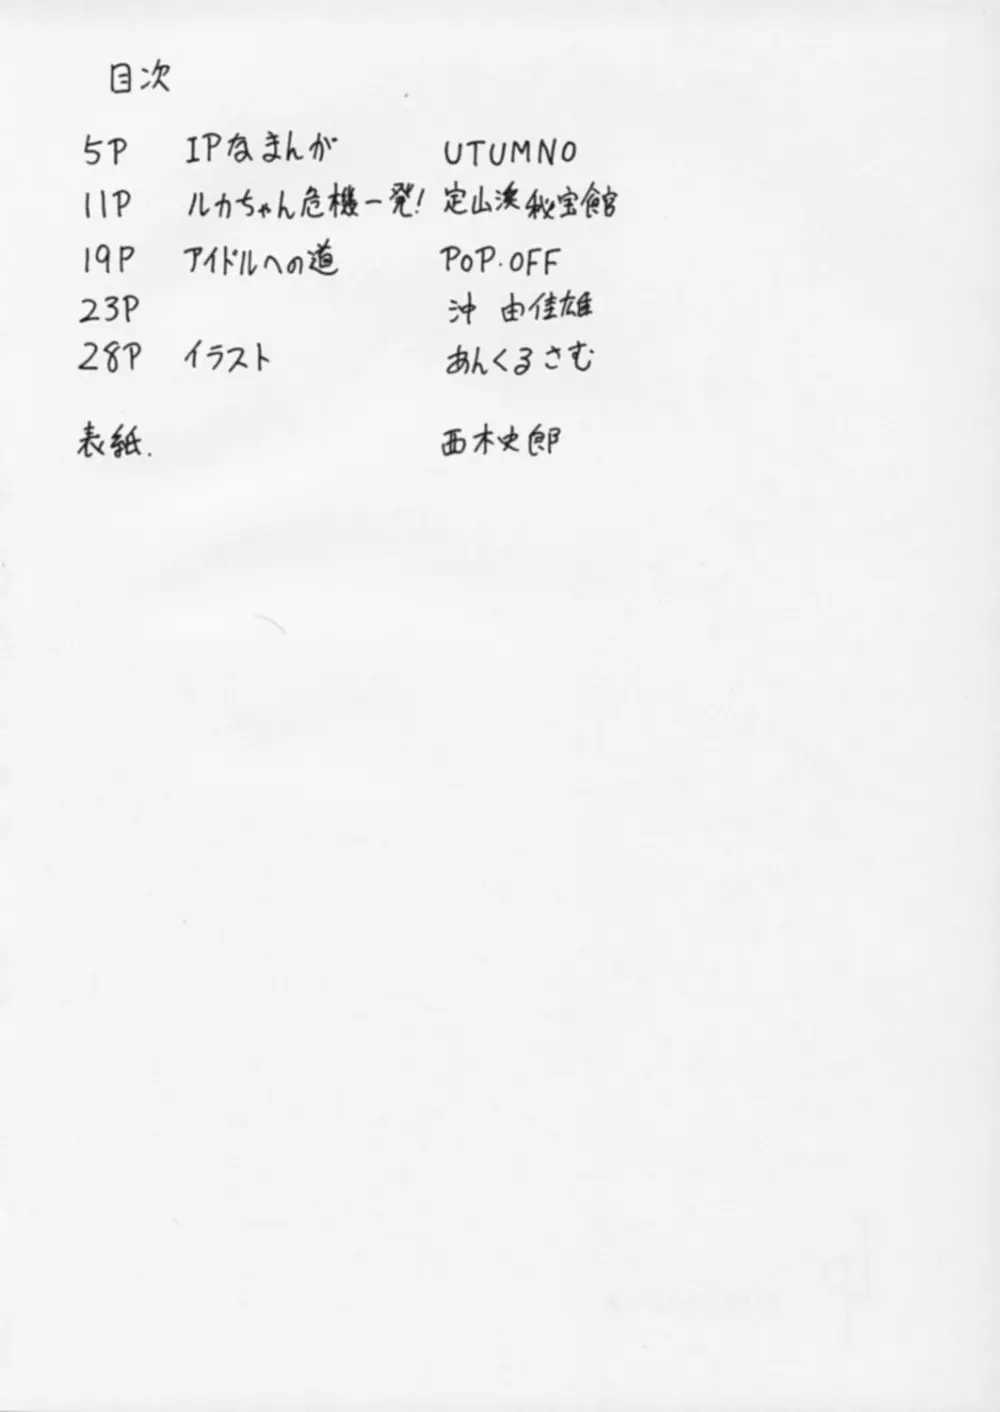 目次
5P IPなまんが UTUMNO
11P ルカちゃん危機一発! 定山渓秘宝館
19P アイドルへの道 POP・OFF
23P 沖 由佳雄
28P イラスト あんくるさむ
表紙. 西木史郎